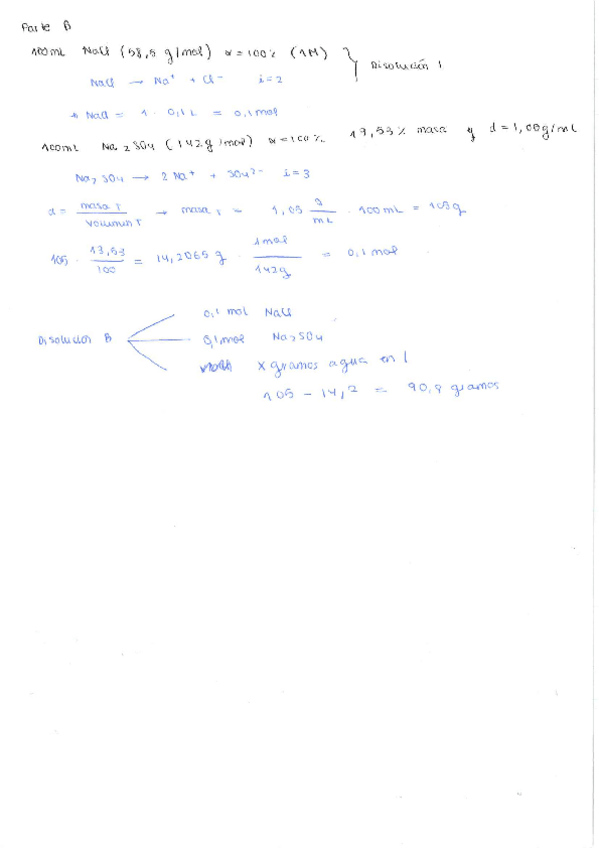 Parte B
100mL NaCl (58,5 g/mol) α=100% (1M) } Disolución 1
NaCl → Na⁺ + Cl⁻ i=2
* NaCl = 1 · 0,1 L = 0,1 mol
100mL Na2SO4 (142g/mol) α=100% 19,53% masa y d=1,05g/mL
Na2SO4 → 2 Na⁺ + SO4²⁻ i=3
d = masa T / volumen T → masa T = 1,05 g/mL · 100mL = 105g
105 · 13,53/100 = 14,2065 g · 1mol/142g = 0,1 mol
0,1 mol NaCl
Disolución B 0,1 mol Na2SO4
x gramos agua en 1
105 - 14,2 = 90,8 gramos